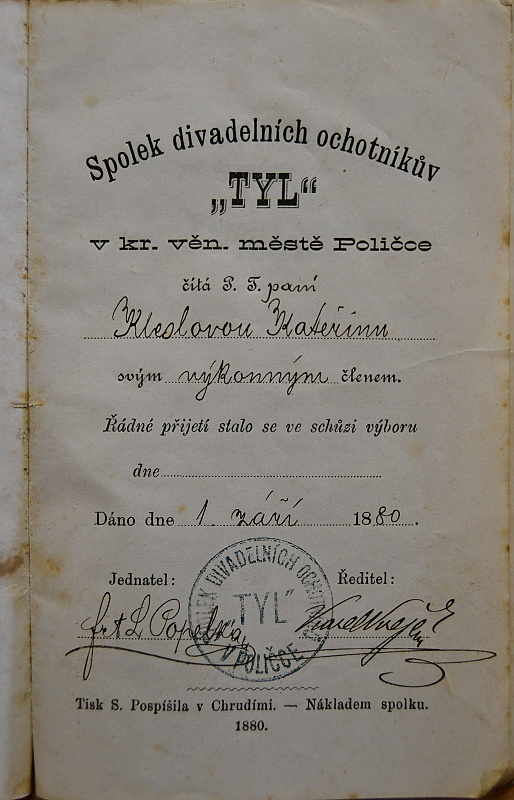 Spolek divadelních ochotníkův
„TYL“
v kr. věn. městě Poličce
čítá P. T. paní
Kleslovou Kateřinu
svým výkonným členem.
Řádné přijetí stalo se ve schůzi výboru
dne
Dáno dne 1. září 1880.
Jednatel: Ředitel:
SPOLEK DIVADELNÍCH OCHOTNÍKŮ
„TYL“
V POLIČCE
Popelka
Tisk S. Pospíšila v Chrudími. — Nákladem spolku.
1880.